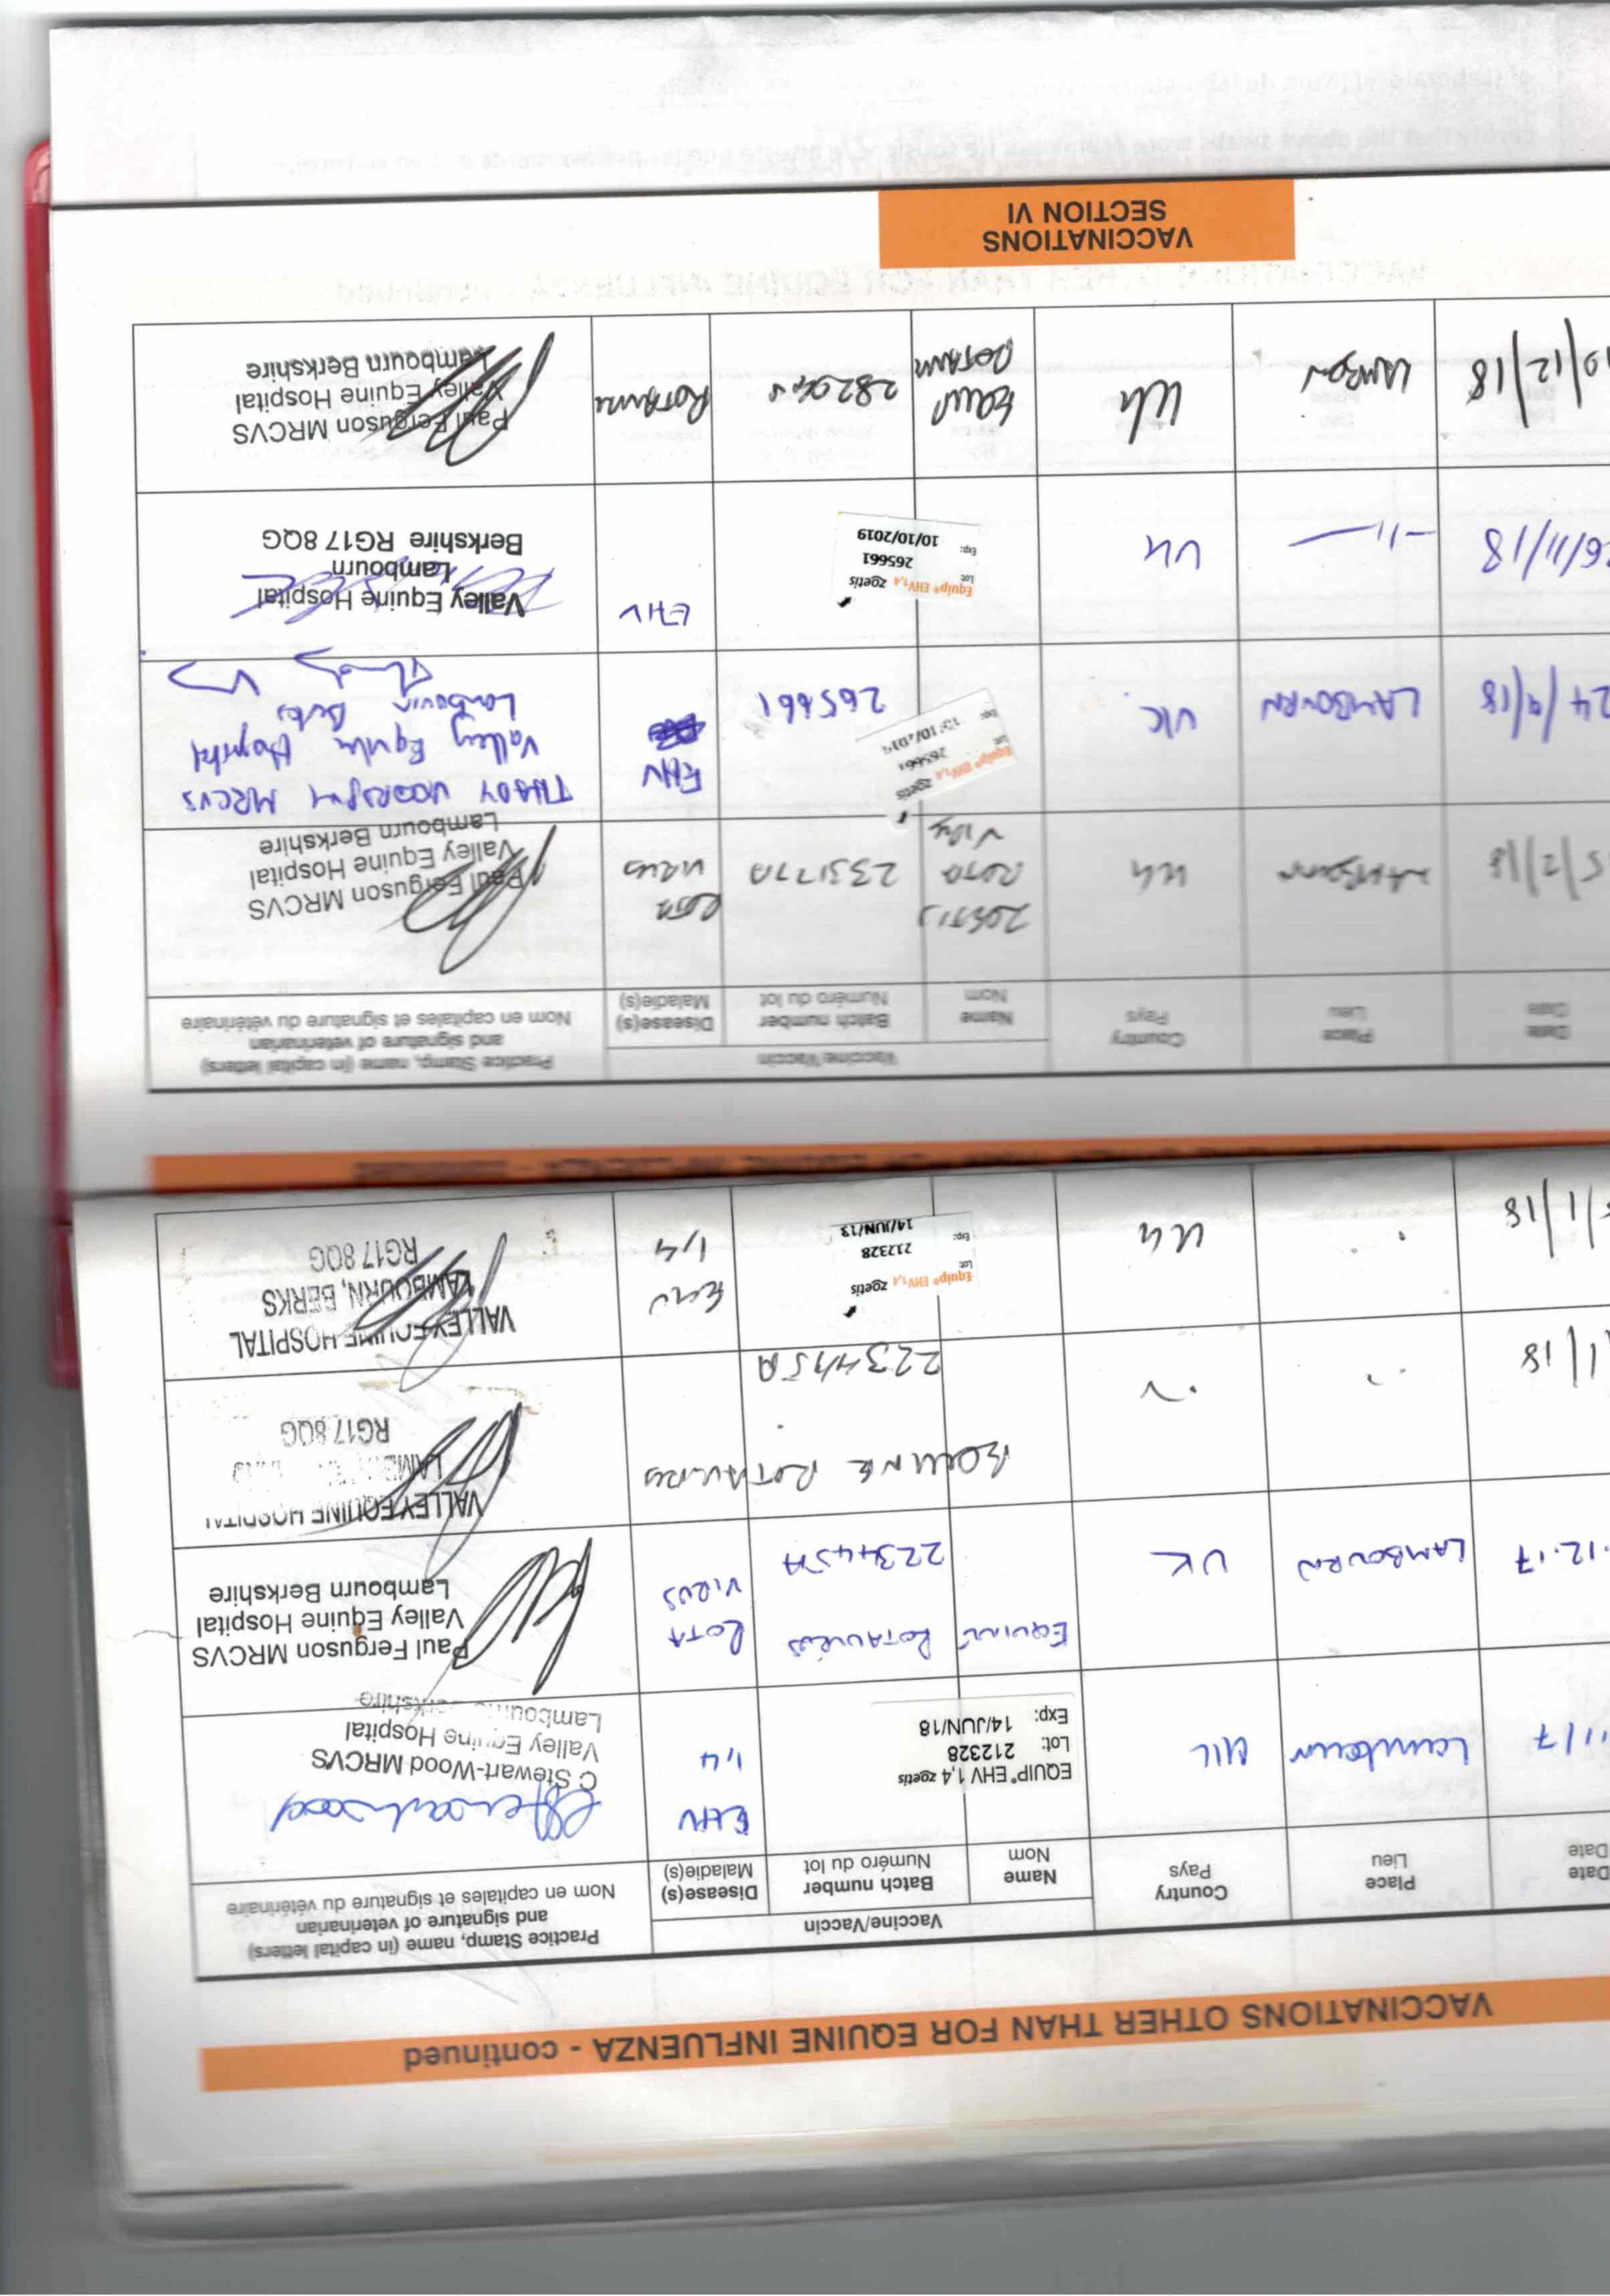 VACCINATIONS OTHER THAN FOR EQUINE INFLUENZA - continued
Date
Date
Place
Lieu
Country
Pays
Vaccine/Vaccin
Name
Nom
Batch number
Numéro du lot
Disease(s)
Maladie(s)
Practice Stamp, name (in capital letters)
and signature of veterinarian
Nom en capitales et signature du vétérinaire
11/17
Lambourn
UK
EQUIP® EHV 1,4 zoetis
Lot: 212328
Exp: 14/JUN/18
EHV
1,4
C Stewart-Wood MRCVS
Valley Equine Hospital
Lambourn Berkshire
.12.17
LAMBOURN
UK
EQUINE ROTAVIRUS
223445A
ROTA
VIRUS
Paul Ferguson MRCVS
Valley Equine Hospital
Lambourn Berkshire
1/18
EQUINE ROTAVIRUS
223445A
VALLEY EQUINE HOSPITAL
RG17 8QG
/1/18
UK
Equip® EHV1,4 zoetis
Lot: 212328
Exp: 14/JUN/18
EHV
1,4
VALLEY EQUINE HOSPITAL
LAMBOURN, BERKS
RG17 8QG
Date
Date
Place
Lieu
Country
Pays
Vaccine/Vaccin
Name
Nom
Batch number
Numéro du lot
Disease(s)
Maladie(s)
Practice Stamp, name (in capital letters)
and signature of veterinarian
Nom en capitales et signature du vétérinaire
5/2/18
UK
ROTA
233177A
ROTA
VIRUS
Paul Ferguson MRCVS
Valley Equine Hospital
Lambourn Berkshire
24/9/18
LAMBOURN
UK
Equip® EHV1,4 zoetis
Lot: 265661
Exp: 10/10/2019
265661
EHV
MRCVS
Valley Equine Hospital
Lambourn Berks
26/11/18
-11-
UK
Equip® EHV1,4 zoetis
Lot: 265661
Exp: 10/10/2019
EHV
Valley Equine Hospital
Lambourn
Berkshire RG17 8QG
/12/18
UK
Paul Ferguson MRCVS
Valley Equine Hospital
Lambourn Berkshire
VACCINATIONS
SECTION VI